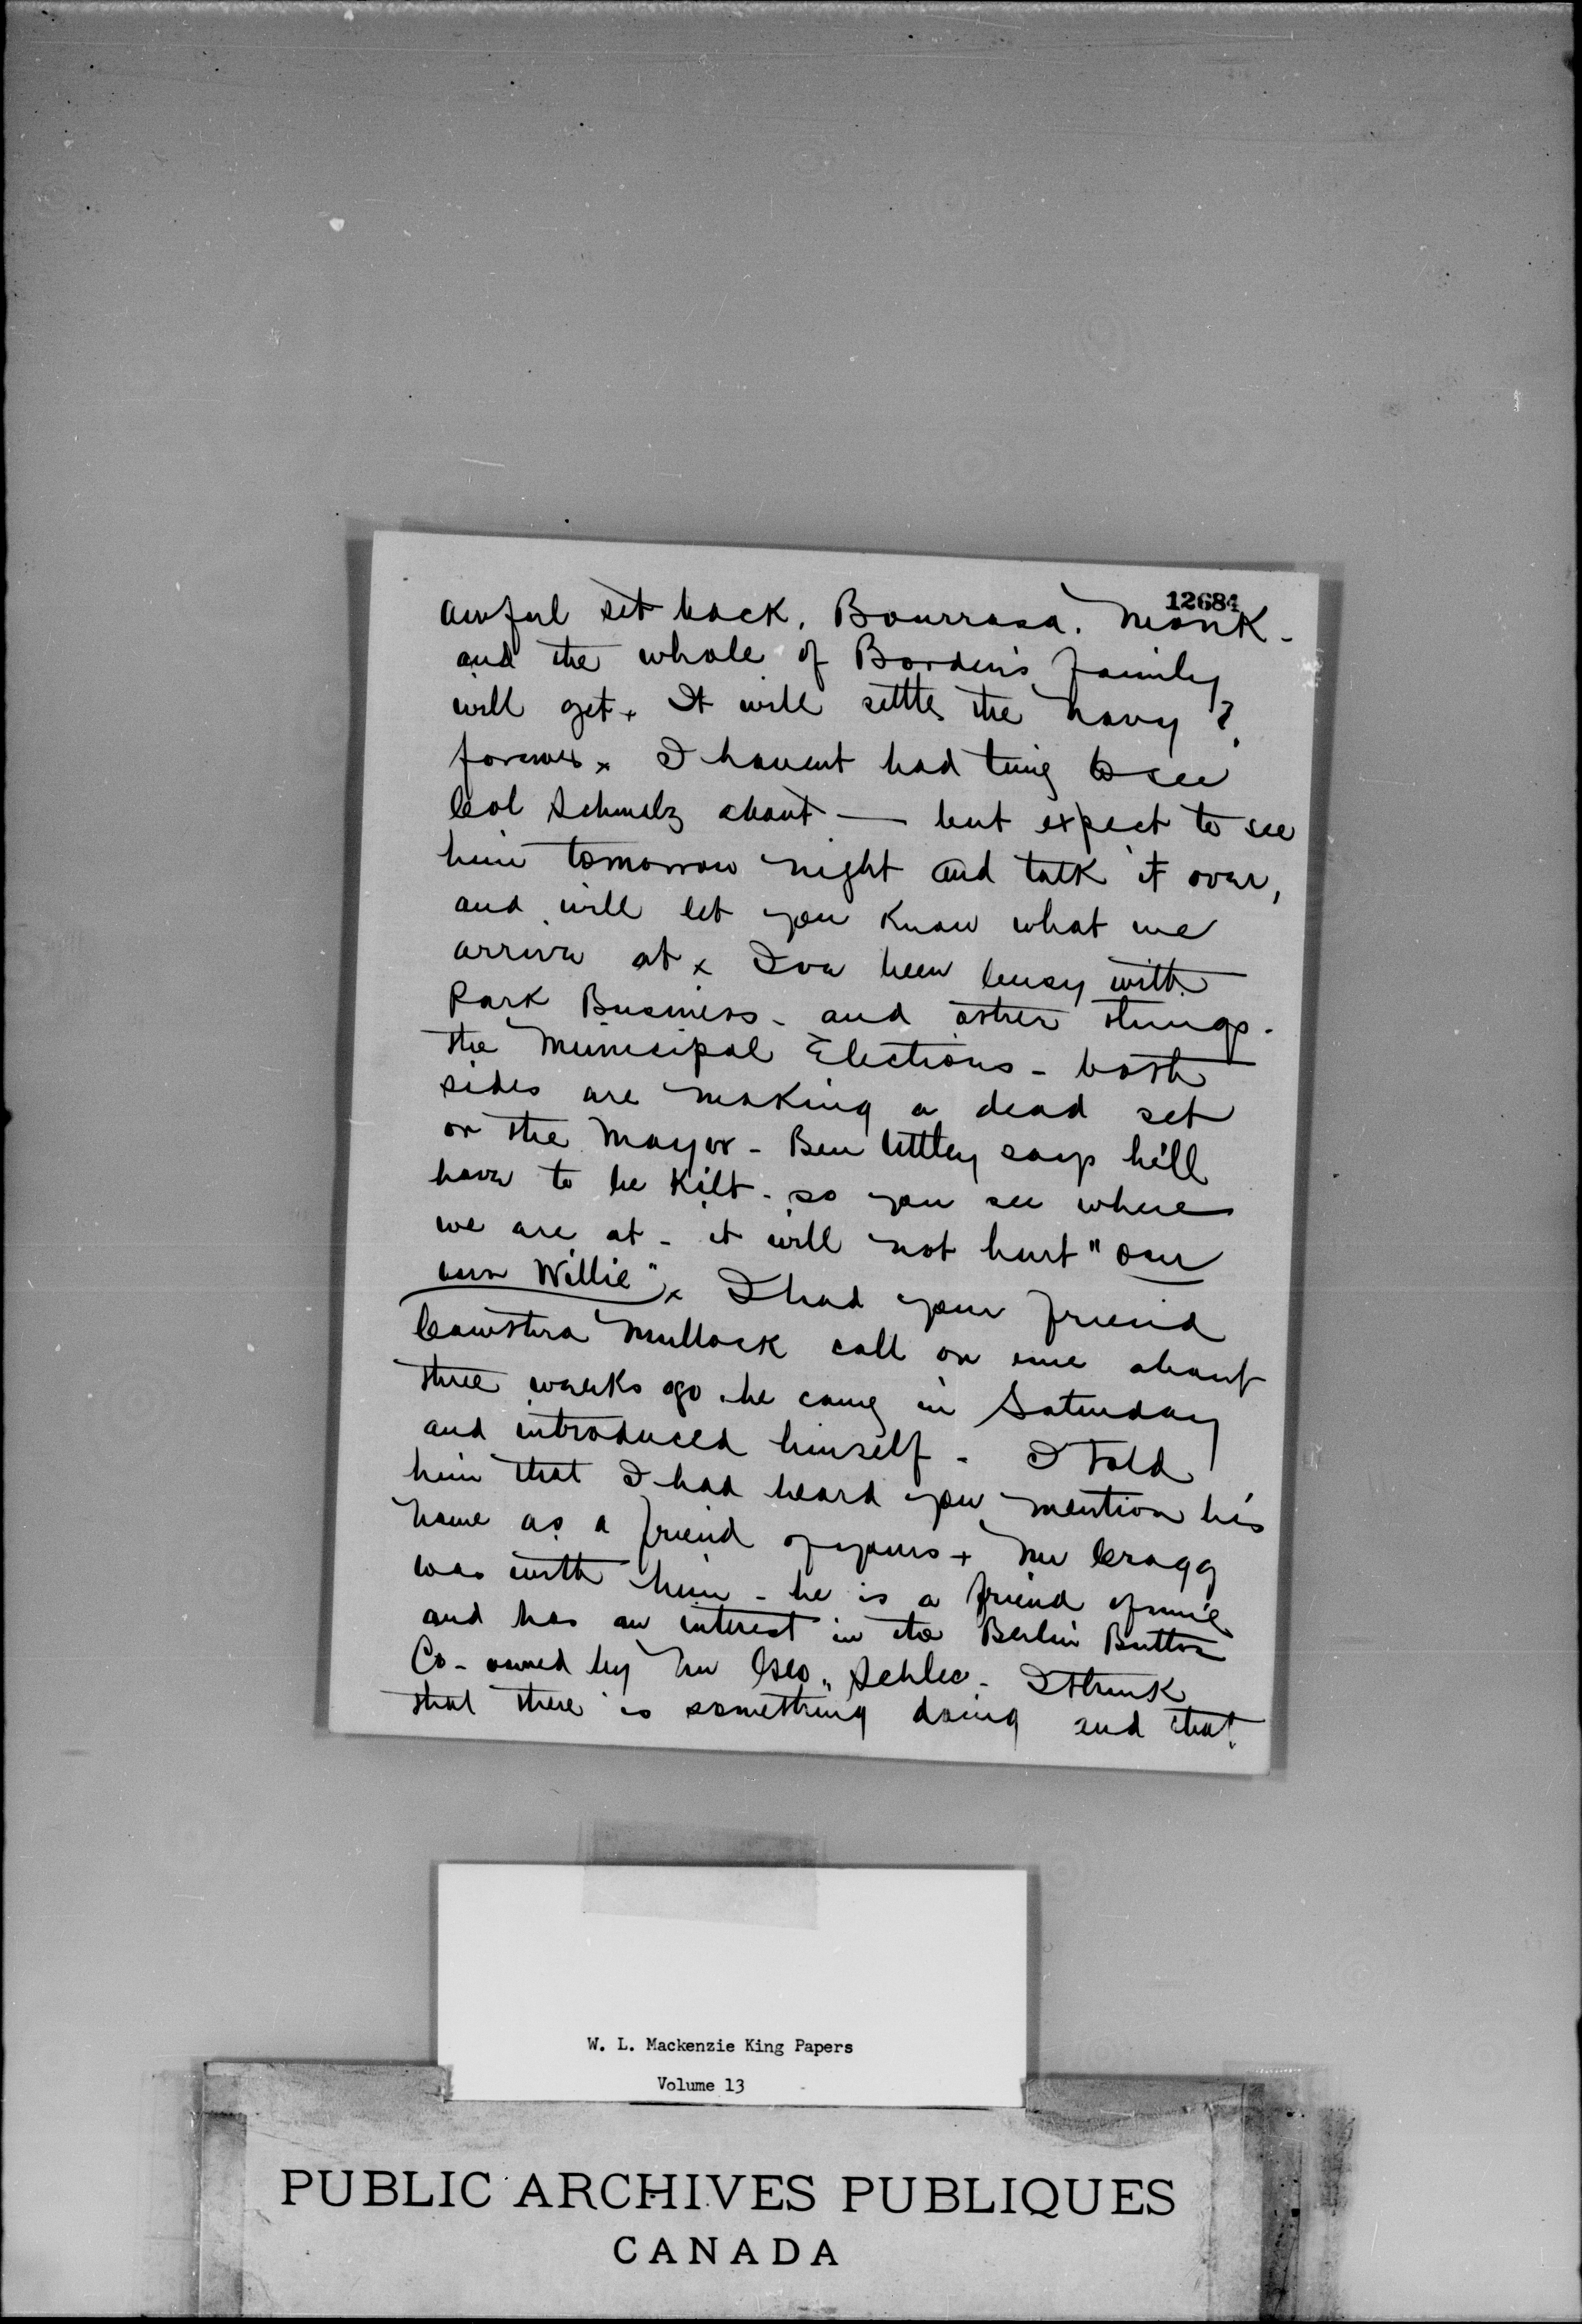 12684
awful set back. Bourrasa. Monk -
and the whole of Borden's family
will get x It will settle the navy ?
forever x I havent had time to see
Col Schmalz about — but expect to see
him tomorrow night and talk it over,
and will let you know what we
arrive at x Ive been busy with
Park Business - and other things.
the Municipal Elections - both
sides are making a dead set
on the Mayor - Ben Uttley says he'll
have to be Kilt - so you see where
we are at - it will not hurt "our
Willie" x I had your friend
Cawthra Mullock call on me about
three weeks ago. he came in Saturday
and introduced himself - I told
him that I had heard you mention his
name as a friend of yours + Mr Cragg
was with him - he is a friend of mine
and has an interest in the Berlin Button
Co - owned by Mr Geo. Schlee - I think
that there is something doing and that
W. L. Mackenzie King Papers
Volume 13
PUBLIC ARCHIVES PUBLIQUES
CANADA